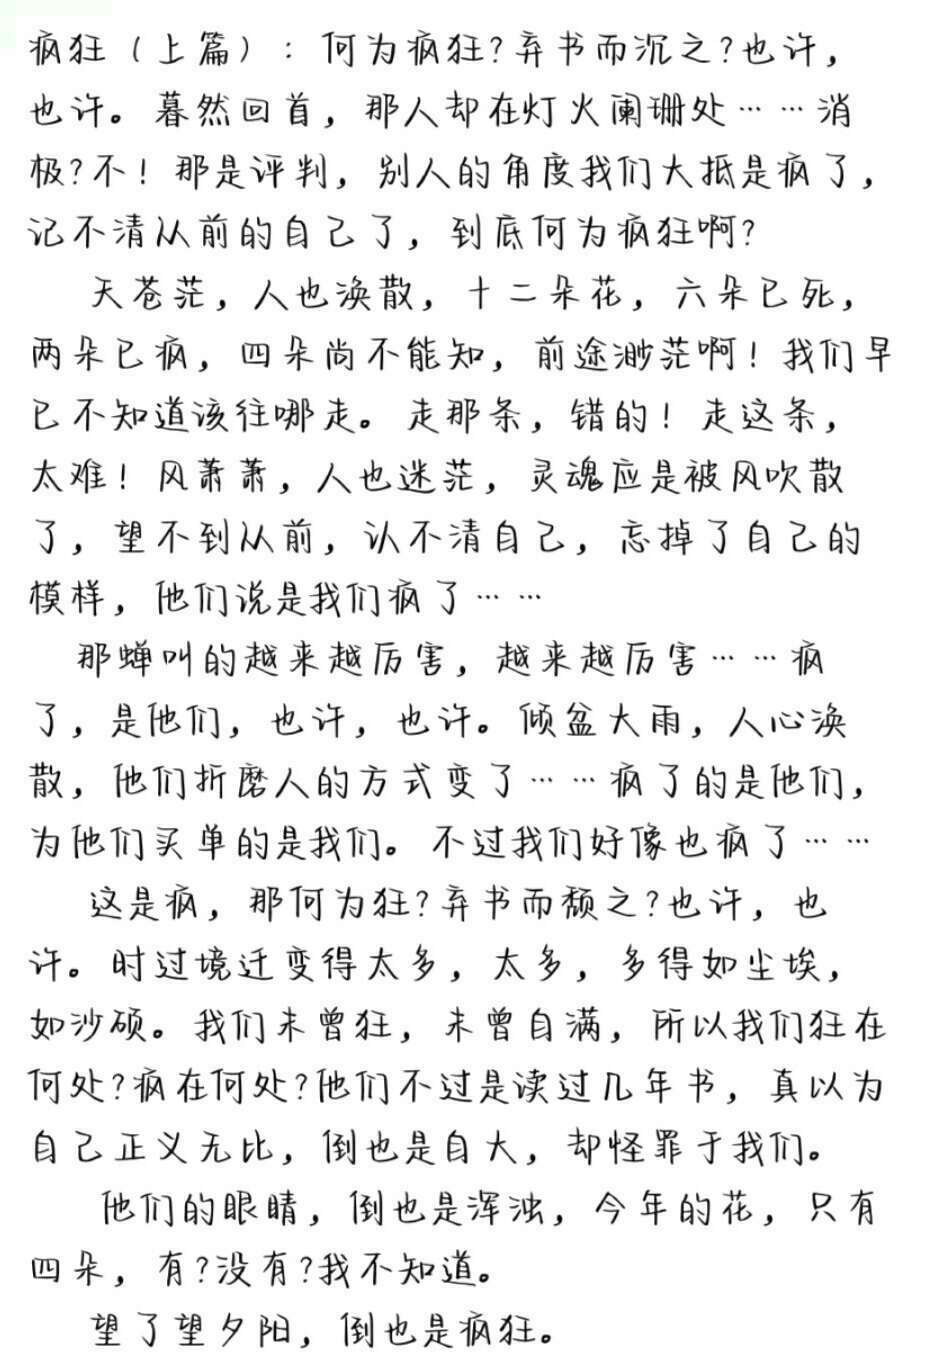 疯狂（上篇）：何为疯狂?弃书而沉之?也许，
也许。暮然回首，那人却在灯火阑珊处……消
极?不！那是评判，别人的角度我们大抵是疯了，
记不清从前的自己了，到底何为疯狂啊?
天苍茫，人也涣散，十二朵花，六朵已死，
两朵已疯，四朵尚不能知，前途渺茫啊！我们早
已不知道该往哪走。走那条，错的！走这条，
太难！风萧萧，人也迷茫，灵魂应是被风吹散
了，望不到从前，认不清自己，忘掉了自己的
模样，他们说是我们疯了……
那蝉叫的越来越厉害，越来越厉害……疯
了，是他们，也许，也许。倾盆大雨，人心涣
散，他们折磨人的方式变了……疯了的是他们，
为他们买单的是我们。不过我们好像也疯了……
这是疯，那何为狂?弃书而颓之?也许，也
许。时过境迁变得太多，太多，多得如尘埃，
如沙硕。我们未曾狂，未曾自满，所以我们狂在
何处?疯在何处?他们不过是读过几年书，真以为
自己正义无比，倒也是自大，却怪罪于我们。
他们的眼睛，倒也是浑浊，今年的花，只有
四朵，有?没有?我不知道。
望了望夕阳，倒也是疯狂。